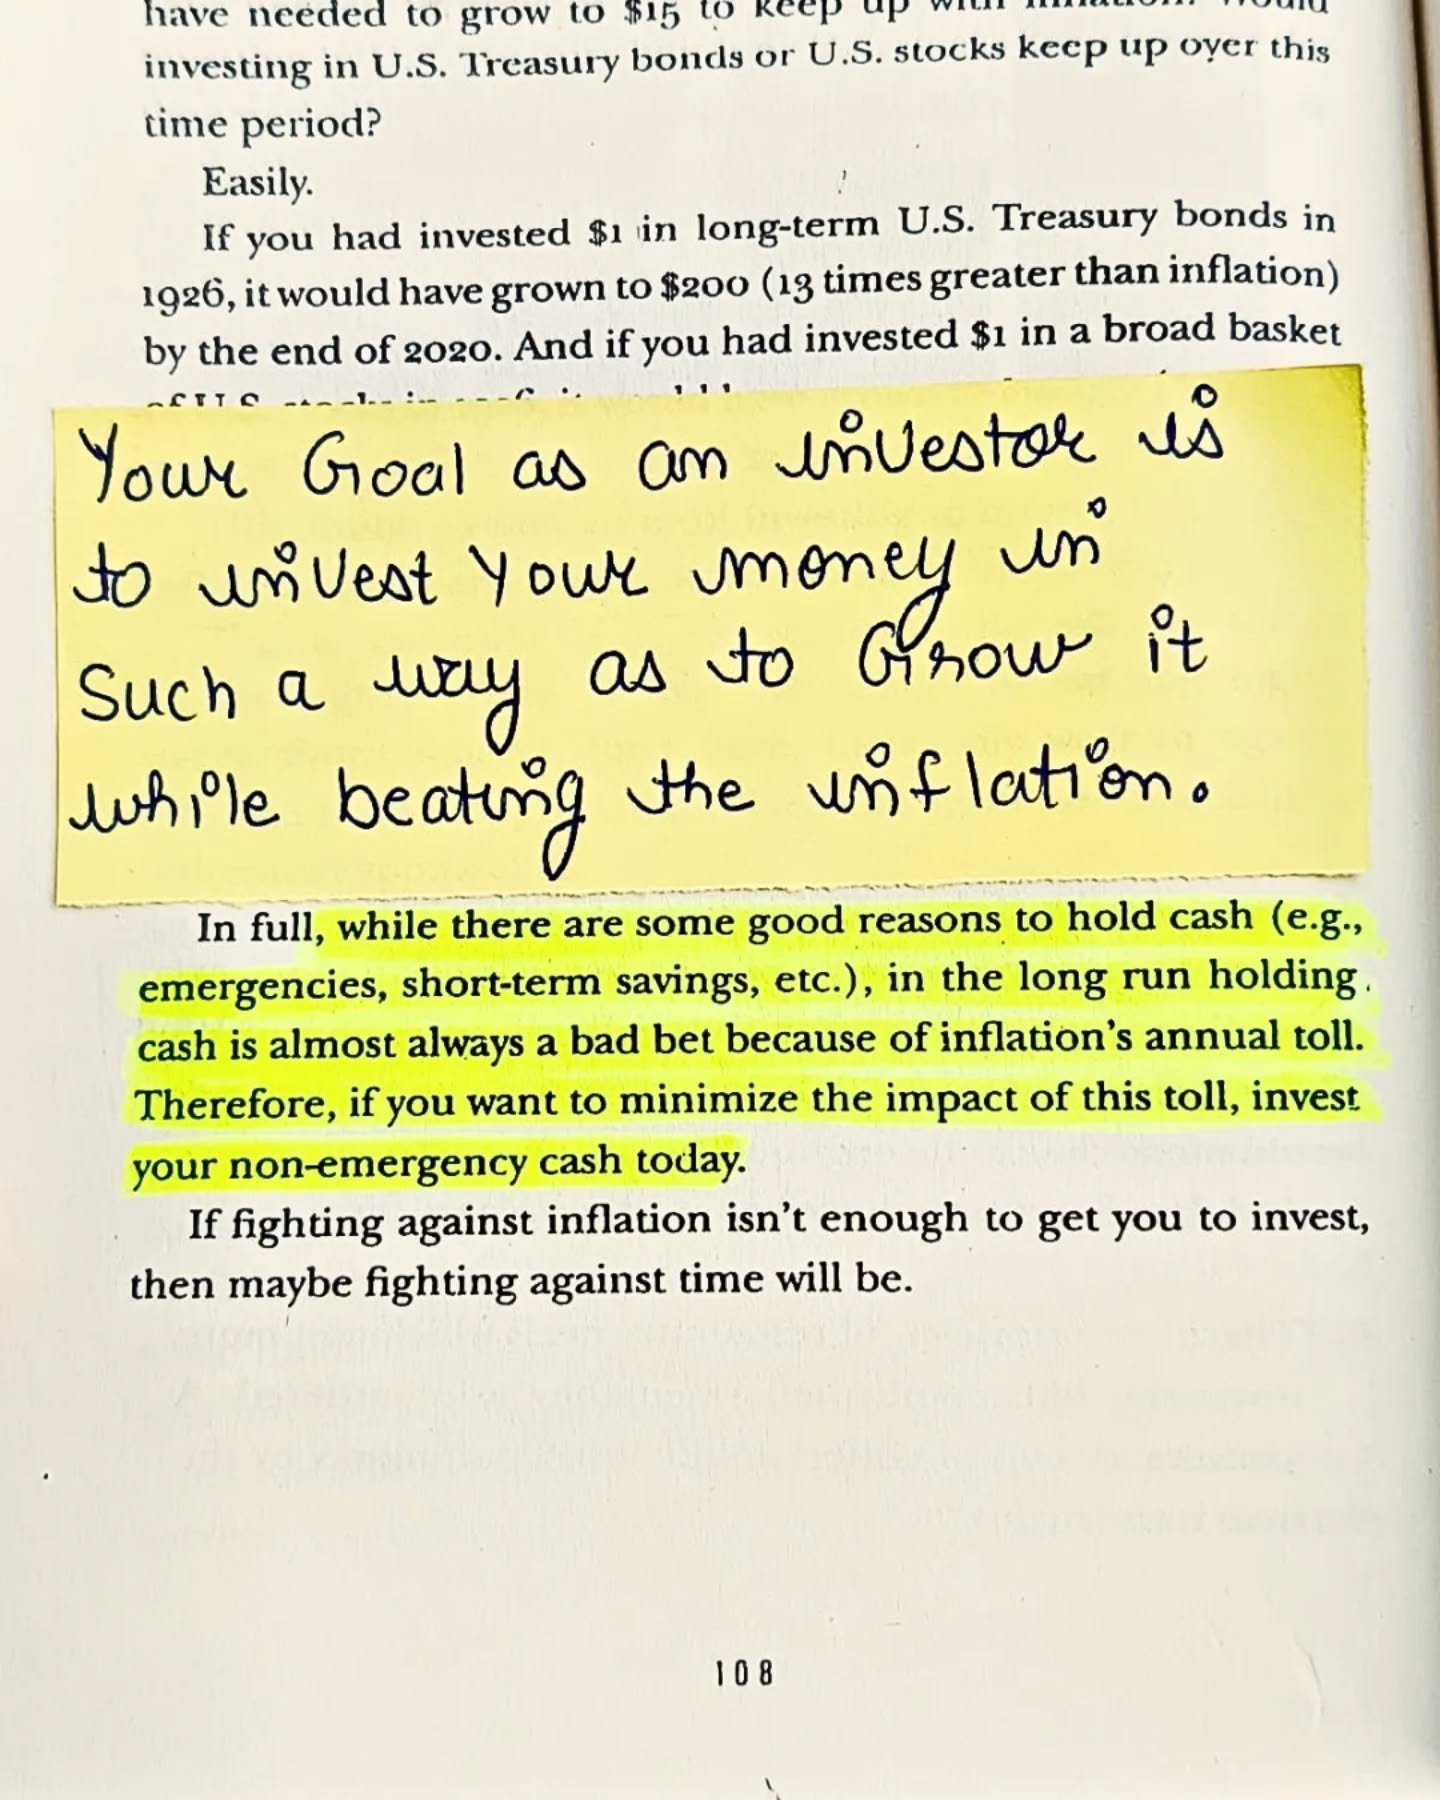 have needed to grow to $15 to keep up with inflation. Would
investing in U.S. Treasury bonds or U.S. stocks keep up over this
time period?
Easily.
If you had invested $1 in long-term U.S. Treasury bonds in
1926, it would have grown to $200 (13 times greater than inflation)
by the end of 2020. And if you had invested $1 in a broad basket
of U.S. stocks in
Your Goal as an investor is
to invest Your money in
Such a way as to Grow it
while beating the inflation.
In full, while there are some good reasons to hold cash (e.g.,
emergencies, short-term savings, etc.), in the long run holding
cash is almost always a bad bet because of inflation's annual toll.
Therefore, if you want to minimize the impact of this toll, invest
your non-emergency cash today.
If fighting against inflation isn't enough to get you to invest,
then maybe fighting against time will be.
108